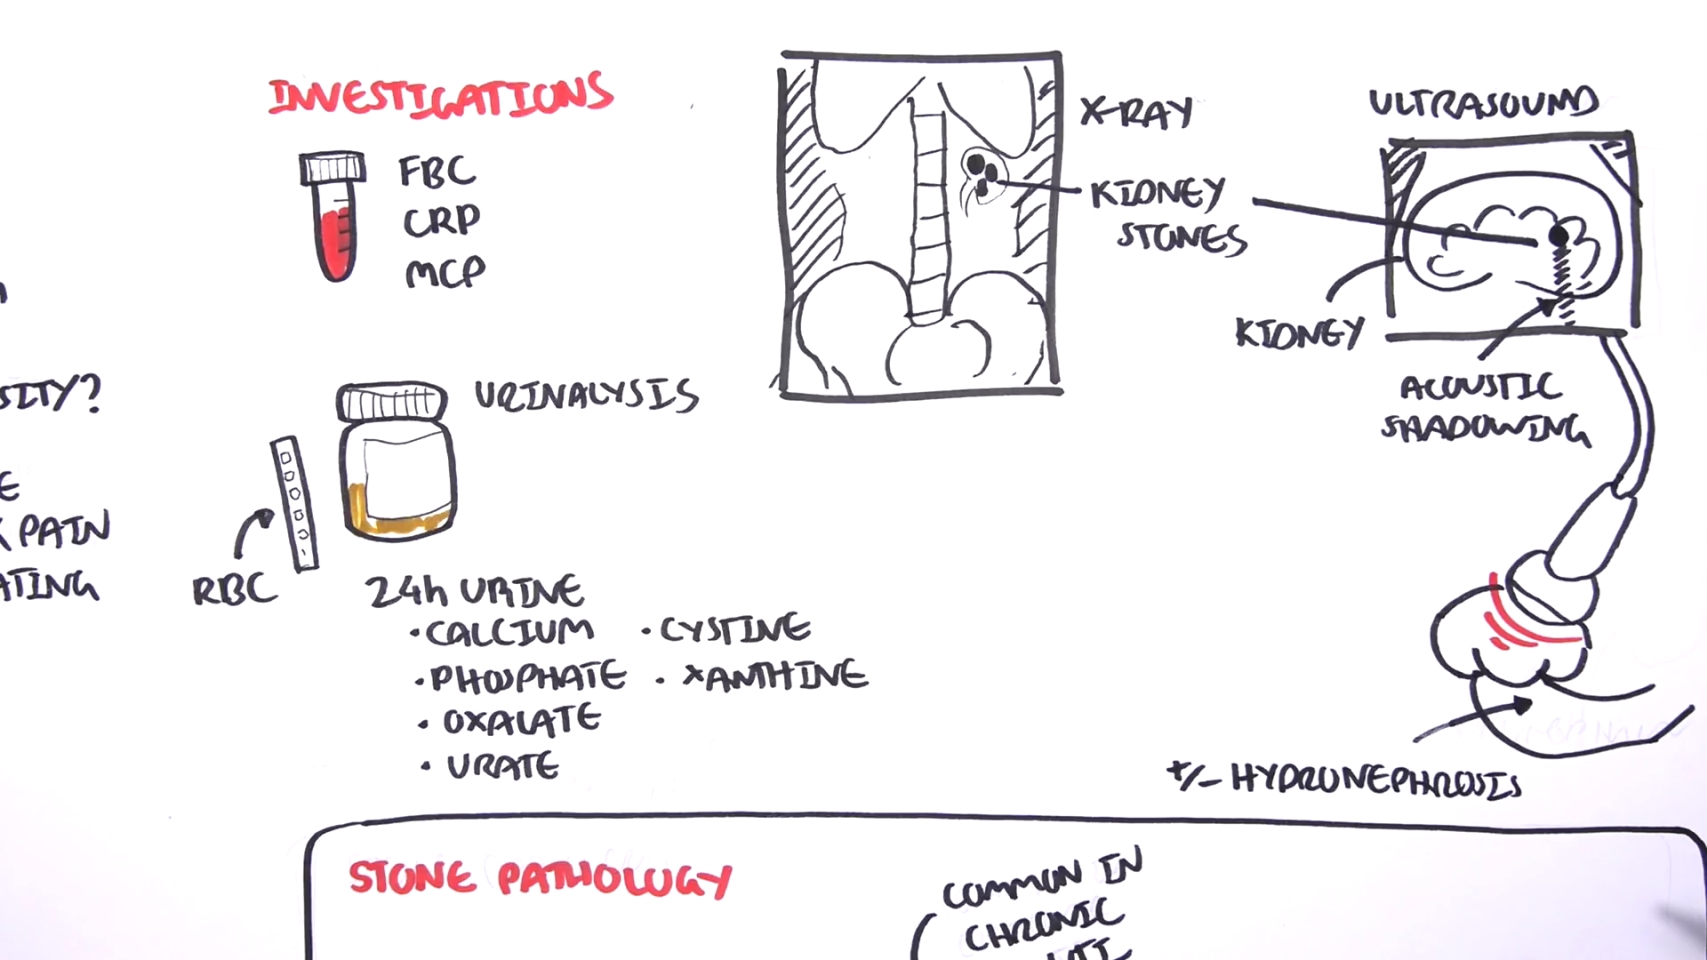 INVESTIGATIONS
FBC
CRP
MCP
X-RAY
KIDNEY
STONES
ULTRASOUND
KIDNEY
ACOUSTIC
SHADOWING
+/- HYDRONEPHROSIS
URINALYSIS
RBC
24h URINE
• CALCIUM
• PHOSPHATE
• OXALATE
• URATE
• CYSTINE
• XANTHINE
SITY?
E
PAIN
ATING
STONE PATHOLOGY
COMMON IN
CHRONIC